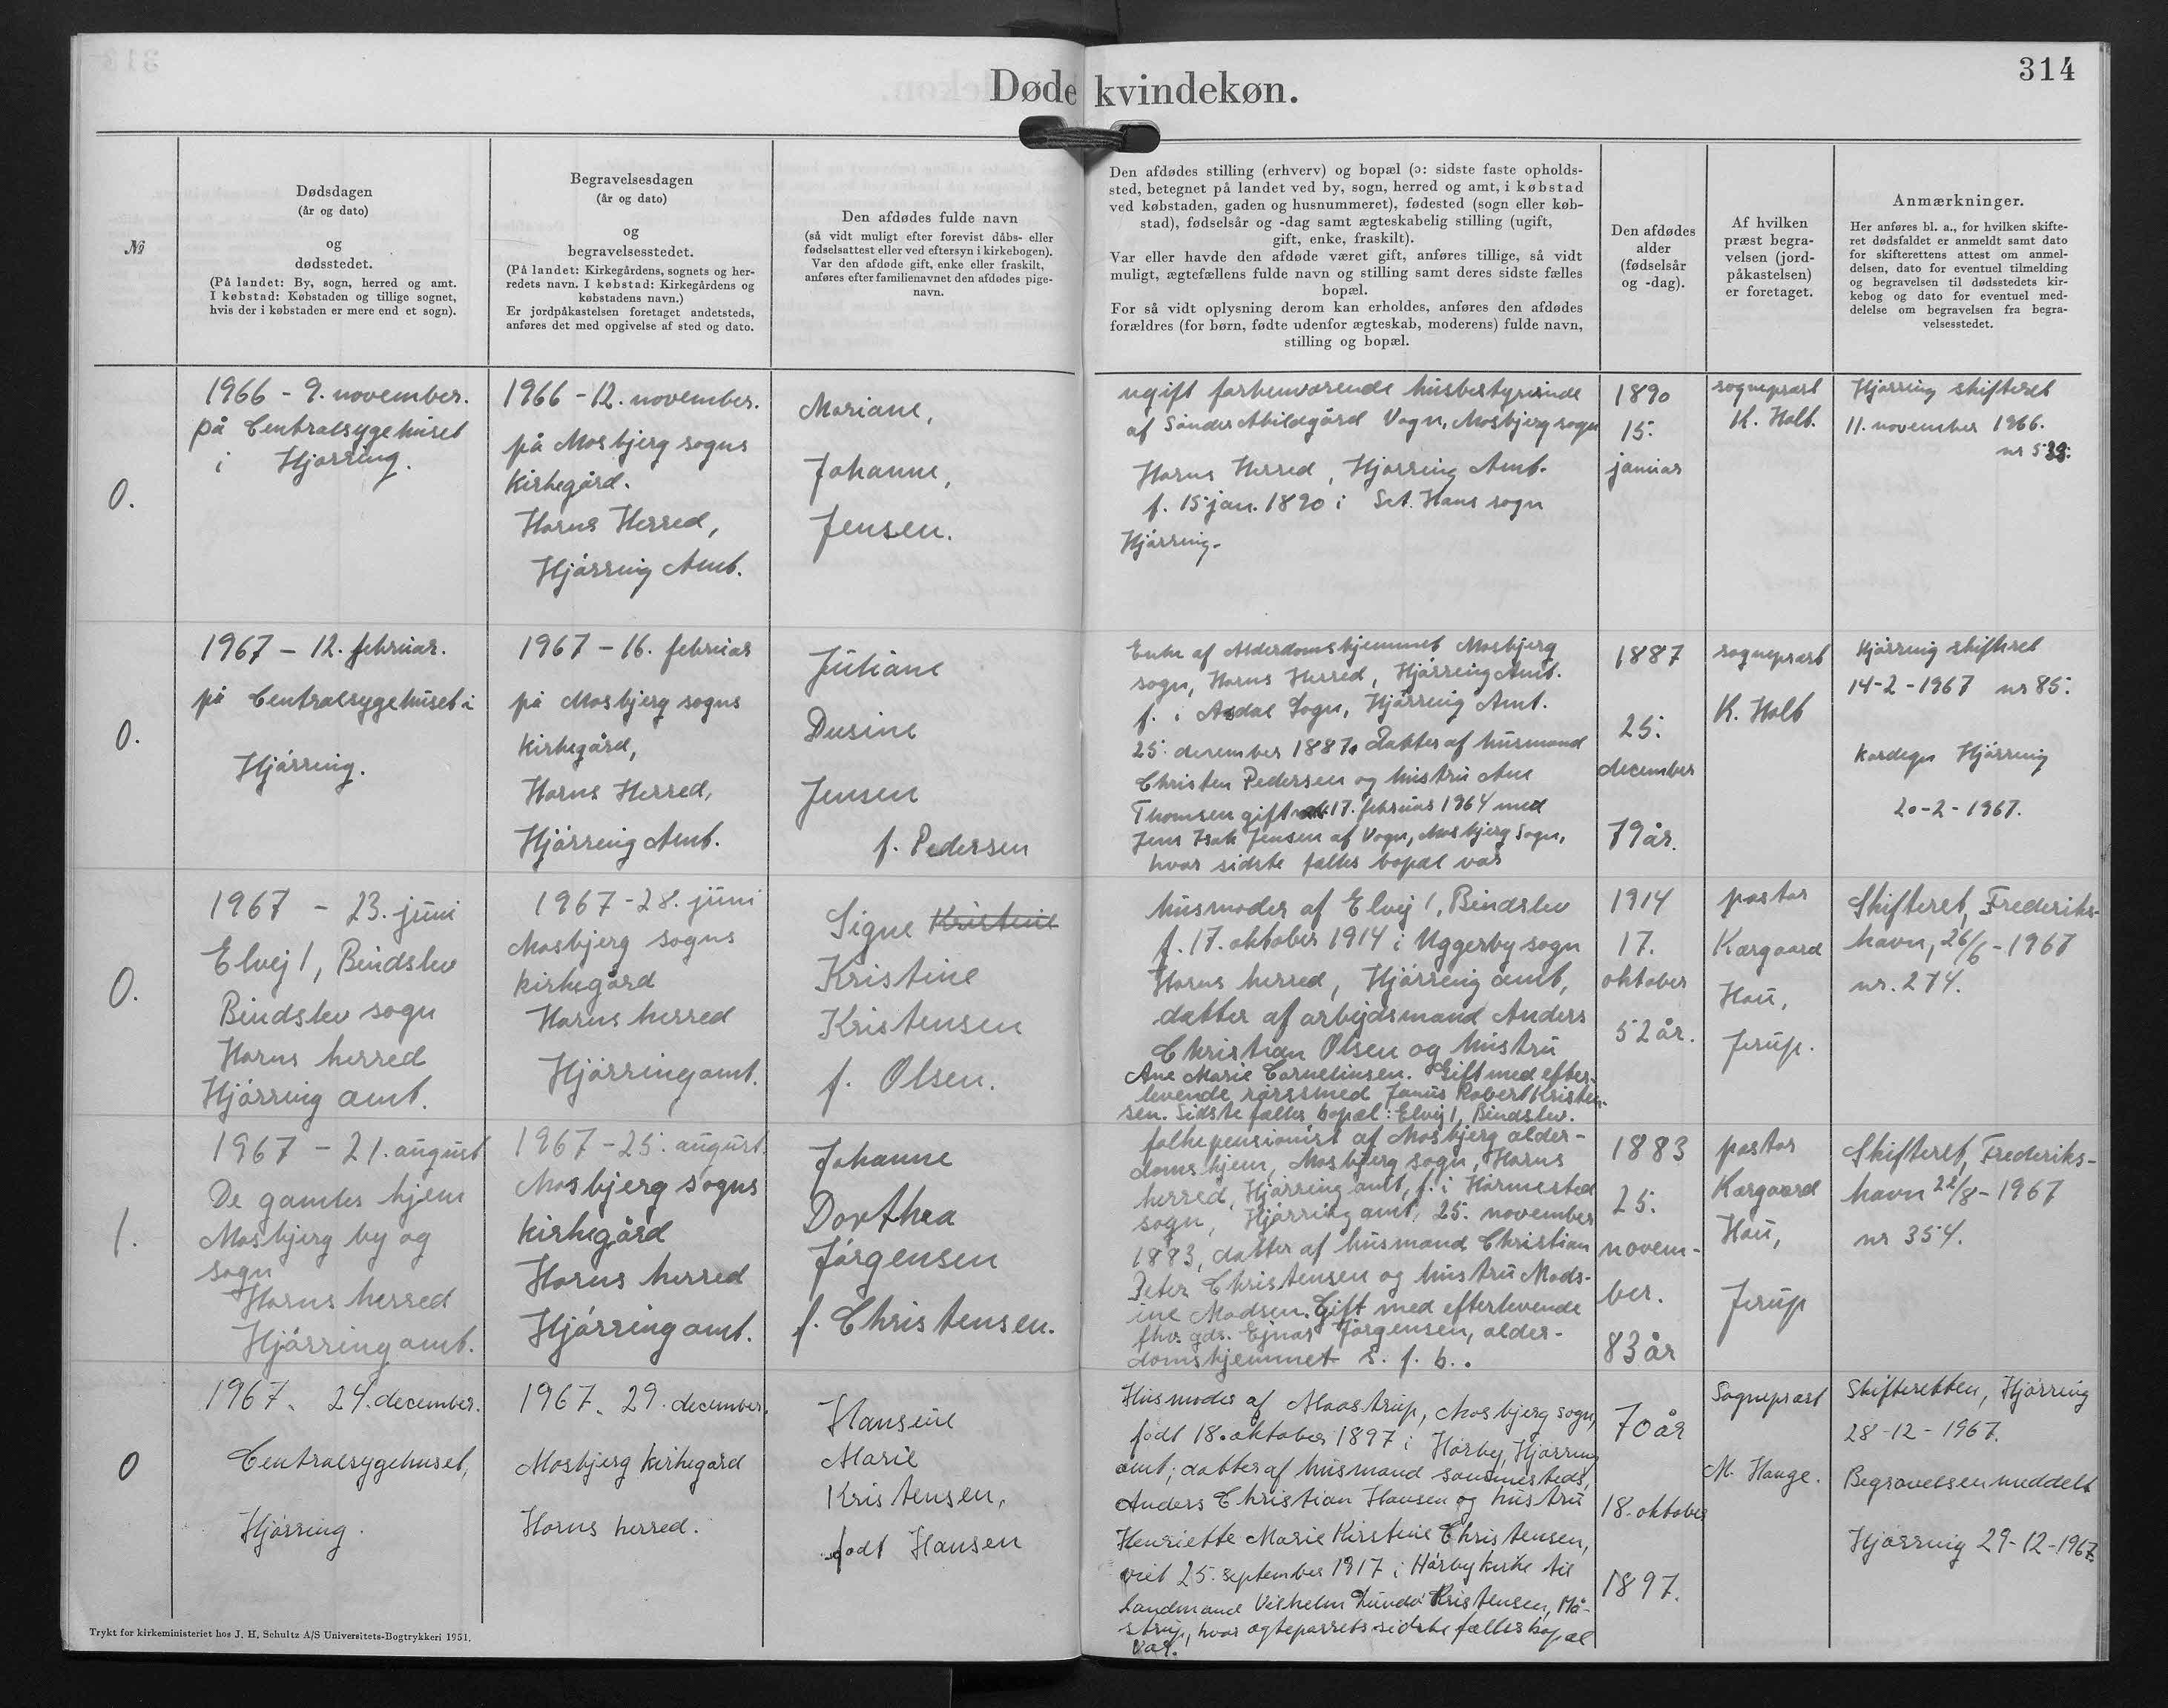 314
Døde kvindekøn.
№
Dødsdagen
(år og dato)
og
dødsstedet.
(På landet: By, sogn, herred og amt.
I købstad: Købstaden og tillige sognet,
hvis der i købstaden er mere end et sogn).
Begravelsesdagen
(år og dato)
og
begravelsesstedet.
(På landet: Kirkegårdens, sognets og her-
redets navn. I købstad: Kirkegårdens og
købstadens navn.)
Er jordpåkastelsen foretaget andetsteds,
anføres det med opgivelse af sted og dato.
Den afdødes fulde navn
(så vidt muligt efter forevist dåbs- eller
fødselsattest eller ved eftersyn i kirkebogen).
Var den afdøde gift, enke eller fraskilt,
anføres efter familienavnet den afdødes pige-
navn.
Den afdødes stilling (erhverv) og bopæl (ɔ: sidste faste opholds-
sted, betegnet på landet ved by, sogn, herred og amt, i købstad
ved købstaden, gaden og husnummeret), fødested (sogn eller køb-
stad), fødselsår og -dag samt ægteskabelig stilling (ugift,
gift, enke, fraskilt).
Var eller havde den afdøde været gift, anføres tillige, så vidt
muligt, ægtefællens fulde navn og stilling samt deres sidste fælles
bopæl.
For så vidt oplysning derom kan erholdes, anføres den afdødes
forældres (for børn, fødte udenfor ægteskab, moderens) fulde navn,
stilling og bopæl.
Den afdødes
alder
(fødselsår
og -dag).
Af hvilken
præst begra-
velsen (jord-
påkastelsen)
er foretaget.
Anmærkninger.
Her anføres bl. a., for hvilken skifte-
ret dødsfaldet er anmeldt samt dato
for skifterettens attest om anmel-
delsen, dato for eventuel tilmelding
og begravelsen til dødsstedets kir-
kebog og dato for eventuel med-
delelse om begravelsen fra begra-
velsesstedet.
0.
1966 - 9. november.
på Centralsygehuset
i Hjørring.
1966 - 12. november.
på Mosbjerg sogns
kirkegård.
Horns Herred,
Hjørring Amt.
Mariane,
Johanne,
Jensen.
ugift forhenværende husbestyrerinde
af Sønder Abildgård Vogn, Mosbjerg sogn
Horns Herred, Hjørring Amt.
f. 15 jan. 1890 i Sct. Hans sogn
Hjørring.
1890
15.
januar
sognepræst
K. Holt.
Hjørring skifteret
11. november 1966.
nr 539.
0.
1967 - 12. februar.
på Centralsygehuset i
Hjørring.
1967 - 16. februar
på Mosbjerg sogns
kirkegård,
Horns Herred,
Hjørring Amt.
Juliane
Dusine
Jensen
f. Pedersen
Enke af Alderdomshjemmet Mosbjerg
sogn, Horns Herred, Hjørring Amt.
f. i Asdal Sogn, Hjørring Amt.
25. december 1887. Datter af husmand
Christen Pedersen og hustru Ane
Thomsen gift 17. februar 1964 med
Jens Isak Jensen af Vogn, Mosbjerg Sogn,
hvor sidste fælles bopæl var
1887
25.
december
79 år.
sognepræst
K. Holt
Hjørring skifteret
14-2-1967 nr 85.
Kordegn Hjørring
20-2-1967.
0.
1967 - 23. juni
Elvej 1, Bindslev
Bindslev sogn
Horns herred
Hjørring amt.
1967 - 28. juni
Mosbjerg sogns
kirkegård
Horns herred
Hjørring amt.
Signe Kristine
Kristine
Kristensen
f. Olsen.
husmoder af Elvej 1, Bindslev
f. 17. oktober 1914 i Uggerby sogn
Horns herred, Hjørring amt,
datter af arbejdsmand Anders
Christian Olsen og hustru
Ane Marie Cornelinsen. Gift med efter-
levende rørsmed Janus Robert Kristen-
sen. Sidste fælles bopæl: Elvej 1, Bindslev.
1914
17.
oktober
52 år.
pastor
Kærgaard
Hou,
Jerup.
Skifteret, Frederiks-
havn, 26/6 - 1967
nr. 274.
1.
1967 - 21. august
De gamles hjem
Mosbjerg by og
sogn
Horns herred
Hjørring amt.
1967 - 25. august
Mosbjerg sogns
kirkegård
Horns herred
Hjørring amt.
Johanne
Dorthea
Jørgensen
f. Christensen.
folkepensionist af Mosbjerg alder-
domshjem, Mosbjerg sogn, Horns
herred, Hjørring amt, f. i Hørmested
sogn, Hjørring amt, 25. november
1883, datter af husmand Christian
Peter Christensen og hustru Mads-
ine Madsen. Gift med efterlevende
fhv. gdr. Ejnar Jørgensen, alder-
domshjemmet s. f. b..
1883
25.
novem-
ber.
83 år
pastor
Kærgaard
Hou,
Jerup
Skifteret, Frederiks-
havn 22/8 - 1967
nr 354.
0
1967. 24. december.
Centralsygehuset,
Hjørring.
1967. 29. december.
Mosbjerg kirkegård
Horns herred.
Hansine
Marie
Kristensen,
født Hansen
Husmoder af Maastrup, Mosbjerg sogn,
født 18. oktober 1897 i Hørby, Hjørring
amt; datter af husmand sammesteds,
Anders Christian Hansen og hustru
Henriette Marie Kirstine Christensen,
viet 25. september 1917 i Hørby kirke til
landmand Vilhelm Lundø Kristensen, Må-
strup, hvor ægteparrets sidste fælles bopæl
var.
70 år
18. oktober
1897.
Sognepræst
M. Hauge.
Skifteretten, Hjørring
28-12-1967.
Begravelsen meddelt
Hjørring 29-12-1967.
Trykt for kirkeministeriet hos J. H. Schultz A/S Universitets-Bogtrykkeri 1951.